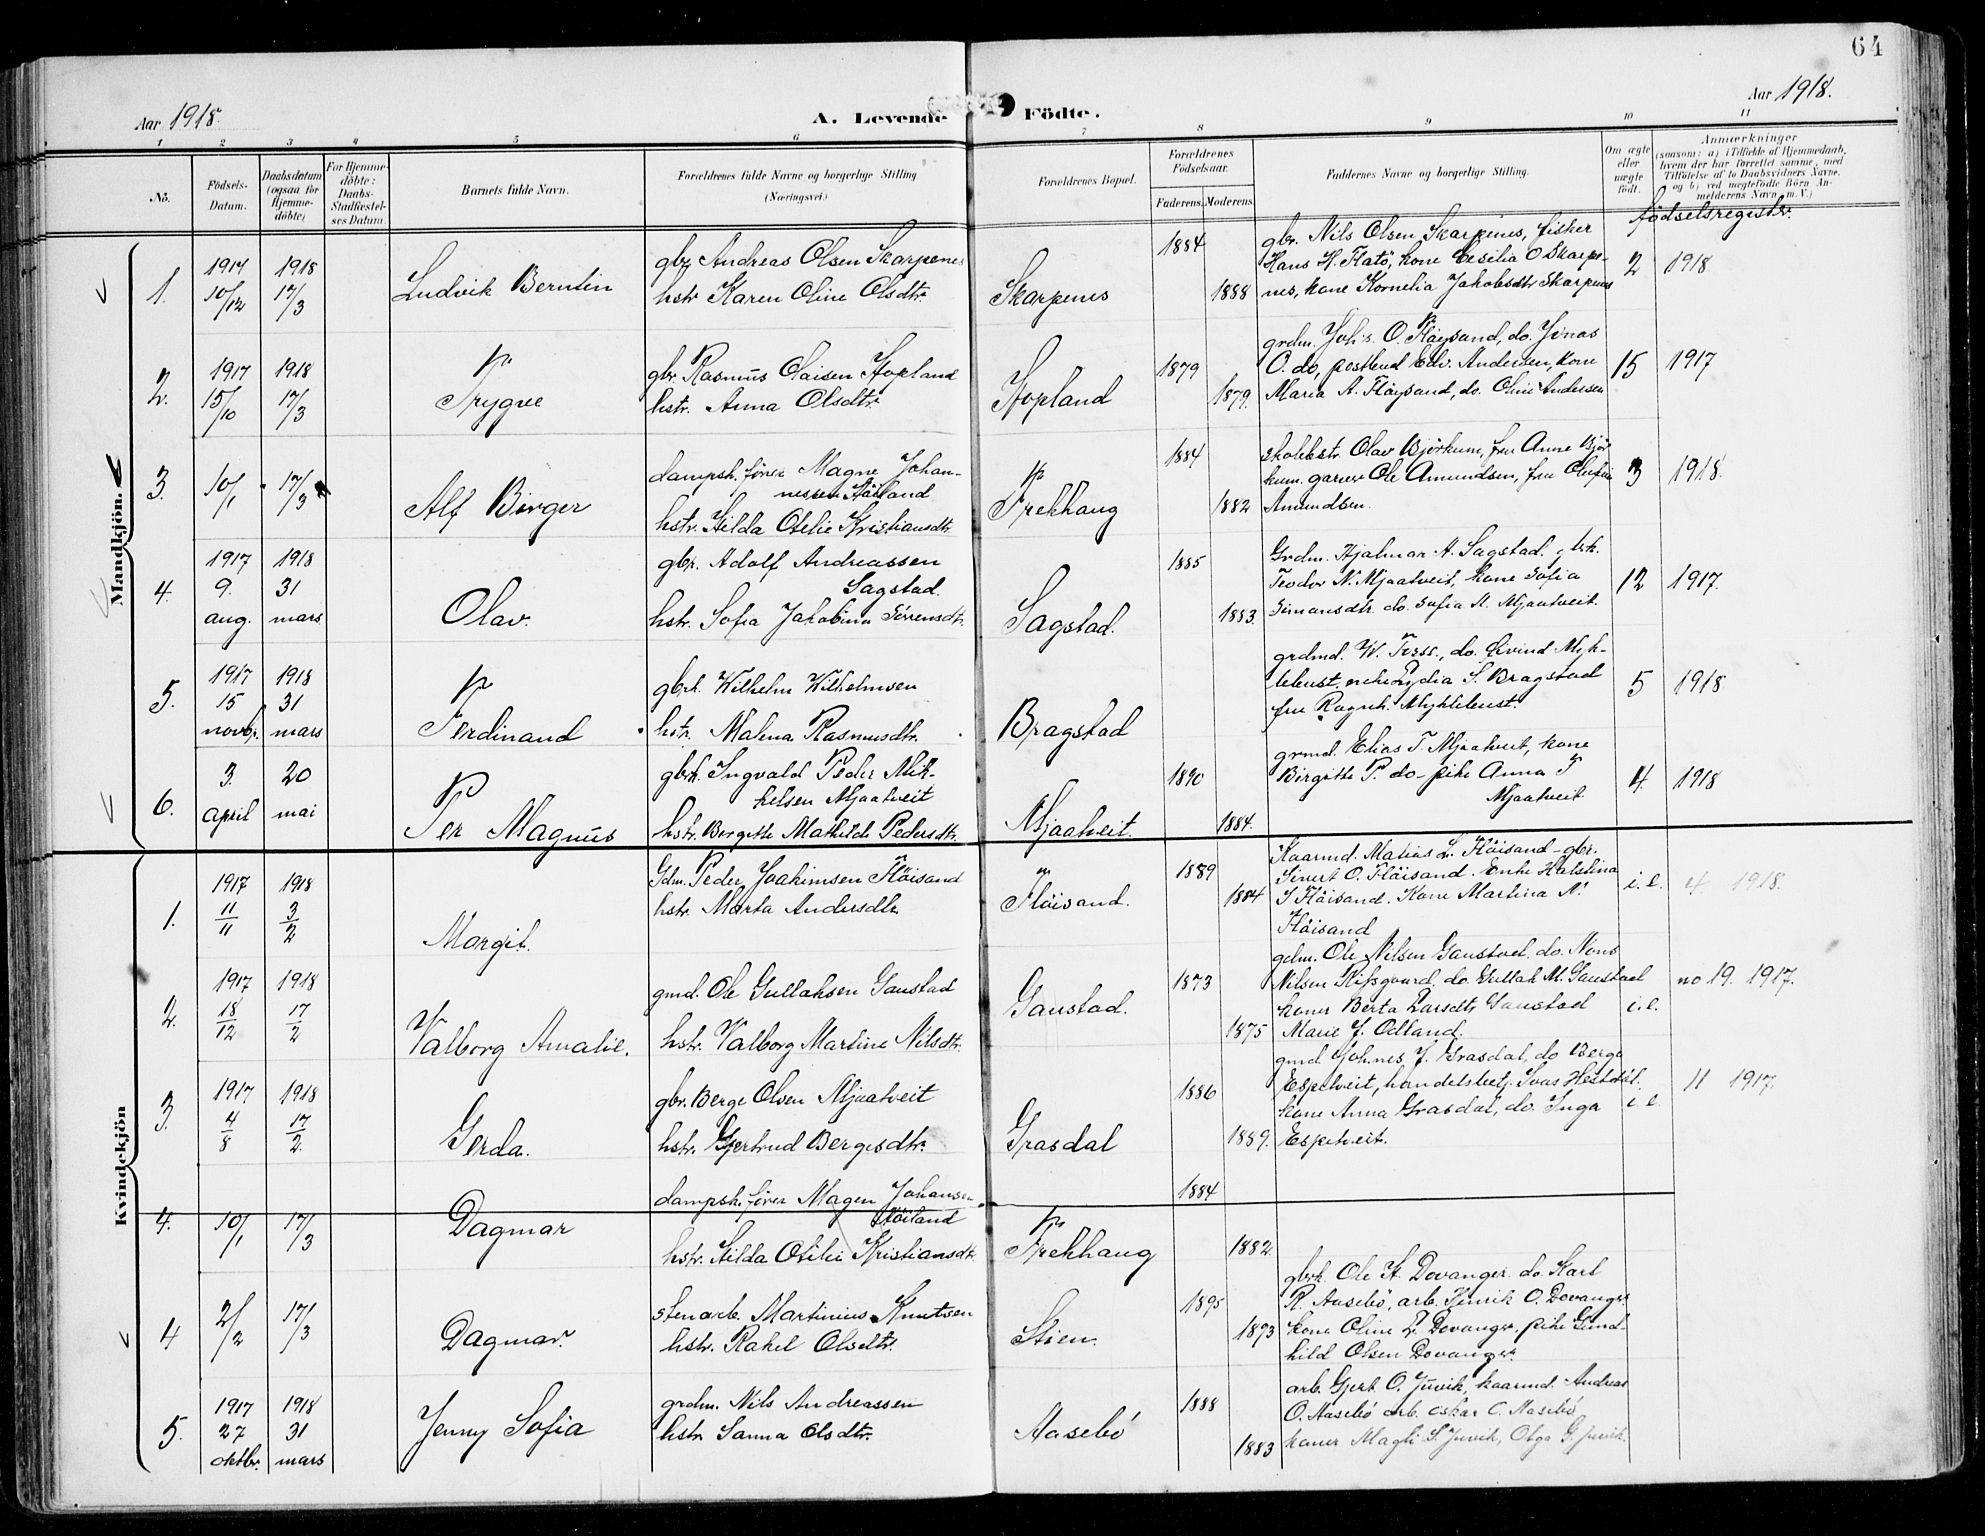 64
Aar 1918.
A. Levende Födte.
Aar 1918.
1 2 3 4 5 6 7 8 9 10 11
No.
Födsels-
Datum.
Daabsdatum
(ogsaa for
Hjemme-
döbte)
For Hjemme-
döbte:
Daabs-
Stadfæstel-
ses Datum.
Barnets fulde Navn.
Forældrenes fulde Navne og borgerlige Stilling
(Næringsvei.)
Forældrenes Bopæl.
Forældrenes
Födselsaar.
Faderens. Moderens.
Faddernes Navne og borgerlige Stilling.
Om ægte
eller
uægte
födt.
Anmærkninger
(saasom: a) i Tilfælde af Hjemmedaab,
hvem der har forrettet samme, med
Tilföielse af to Daabsvidners Navne.
og b) ved uægtefödte Börn An-
melderens Navn m. V.)
födselsregistr.
Mandkjön.
1.
1917
10/12
1918
17/3
Ludvik Berntin
gbr. Andreas Olsen Skarpenes
hstr. Karen Oline Olsdtr.
Skarpenes
1884
1888
gbr. Nils Olsen Skarpenes, fisker
Hans H. Flatö, kone Cesilia O Skarpe-
nes, kone Kornelia Jakobsdtr Skarpenes
2
1918
2.
1917
15/10
1918
17/3
Trygve
gbr. Rasmus Olaisen Hopland
hstr. Anna Olsdtr.
Hopland
1879
1879.
grdm. Johs. O. Fløysand, do. Jonas
O. do, postbud Edv. Andersen, kone
Maria A. Fløysand, do. Oline Andersen
15
1917
3.
10/1
17/3
Alf Birger
dampsk. fører Magne Johan-
nessen Høiland
hstr. Hilda Otelie Kristiansdtr.
Frekhaug
1884
1882
skolebstr. Olav Bjørkum, fru Anne Bjør
kum. garver Ole Amundsen, fru
Amundsen.
3
1918.
4.
1917
9.
aug.
1918
31
mars
Olav.
gbr. Adolf Andreassen
Sagstad.
hstr. Sofia Jakobine Sørensdtr.
Sagstad.
1885
1883.
Grdm. Hjalmar A. Sagstad. gbrk.
Teodor N. Mjaatveit, kone Sofia
Simonsdtr. do. Sofia A. Mjaatveit.
12
1917.
5.
1917
15
novbr.
1918
31
mars
Ferdinand
gbrk. Wilhelm Wilhelmsen
hstr. Malena Rasmusdtr.
Bragstad
grdmd. W. do. Eivind Myk-
lebust. enke Lydia S. Bragstad
fru Ragnh. Myklebust.
5
1918
6.
3.
april
20
mai
Per Magnus
gbrk. Ingvald Peder Mik-
kelsen Mjaatveit
hstr. Bergitte Mathilde Pedersdtr.
Mjaatveit.
1890
1884.
grmd. Elias T. Mjaatveit, kone
Birgitte P. do- pike Anna T
Mjaatveit.
4.
1918
Kvindekjön
1.
1917
11/11
1918
3/2
Margit.
Gdm. Peder Joakimsen Fløisand
hstr. Marta Andersdtr
Fløisand.
1889
1884
Kaarmd. Matias L. Fløisand - gbr.
Sivert O. Fløisand. Enke Halstina
S Fløisand. Kone Martina N.
Fløisand
i. e.
4 1918.
2.
1917
18/12
1918
17/2
Valborg Amalie.
gmd. Ole Gullaksen Gaustad
hstr. Valborg Martine Nilsdtr.
Gaustad.
1873
1875
gdm. Ole Nilsen Gaustad. do. Mons
Nilsen do. Gullak M. Gaustad
koner Berta Larsdtr Gaustad
Marie J. Odland.
i. e.
no 19. 1917.
3.
1917
4/8
1918
17/2.
Gerda.
gbr. Berge Olsen Mjaatveit
hstr. Gjertrud Bergesdtr.
Grasdal
1886
1889.
gmd Johnes J. Grasdal, do Berge
Espetveit, handelsbetj. Hestdal.
kone Anna Grasdal, do. Inga
Espetveit.
i e.
11 1917.
4.
10/1
17/3
Dagmar
dampsk. fører Magen Johansen
Høiland
hstr. Hilda Otilie Kristiansdtr.
Frekhaug
1884
1882
4
2/2
17/3
Dagmar.
stenarb. Martinius Knutsen
hstr. Rakel Olsdtr.
Stien.
1895
1893
gbrk. Ole H. Dovanger. do. Karl
R. Aasebø, arb. Henrik O. Dovanger.
kone Oline L. Dovanger, pike Gund-
hild Olsen Dovanger.
5.
1917
27
oktbr.
1918
31
mars
Jenny Sofia
grdm. Nils Andreassen
hstr. Sanna Olsdtr.
Aasebø
1888
1883
arb. Gjert O. Juvik, kaarmd. Andreas
O. Aasebø arb. oskar O. Aasebø
koner Magli S. Juvik, Olga G. Juvik.